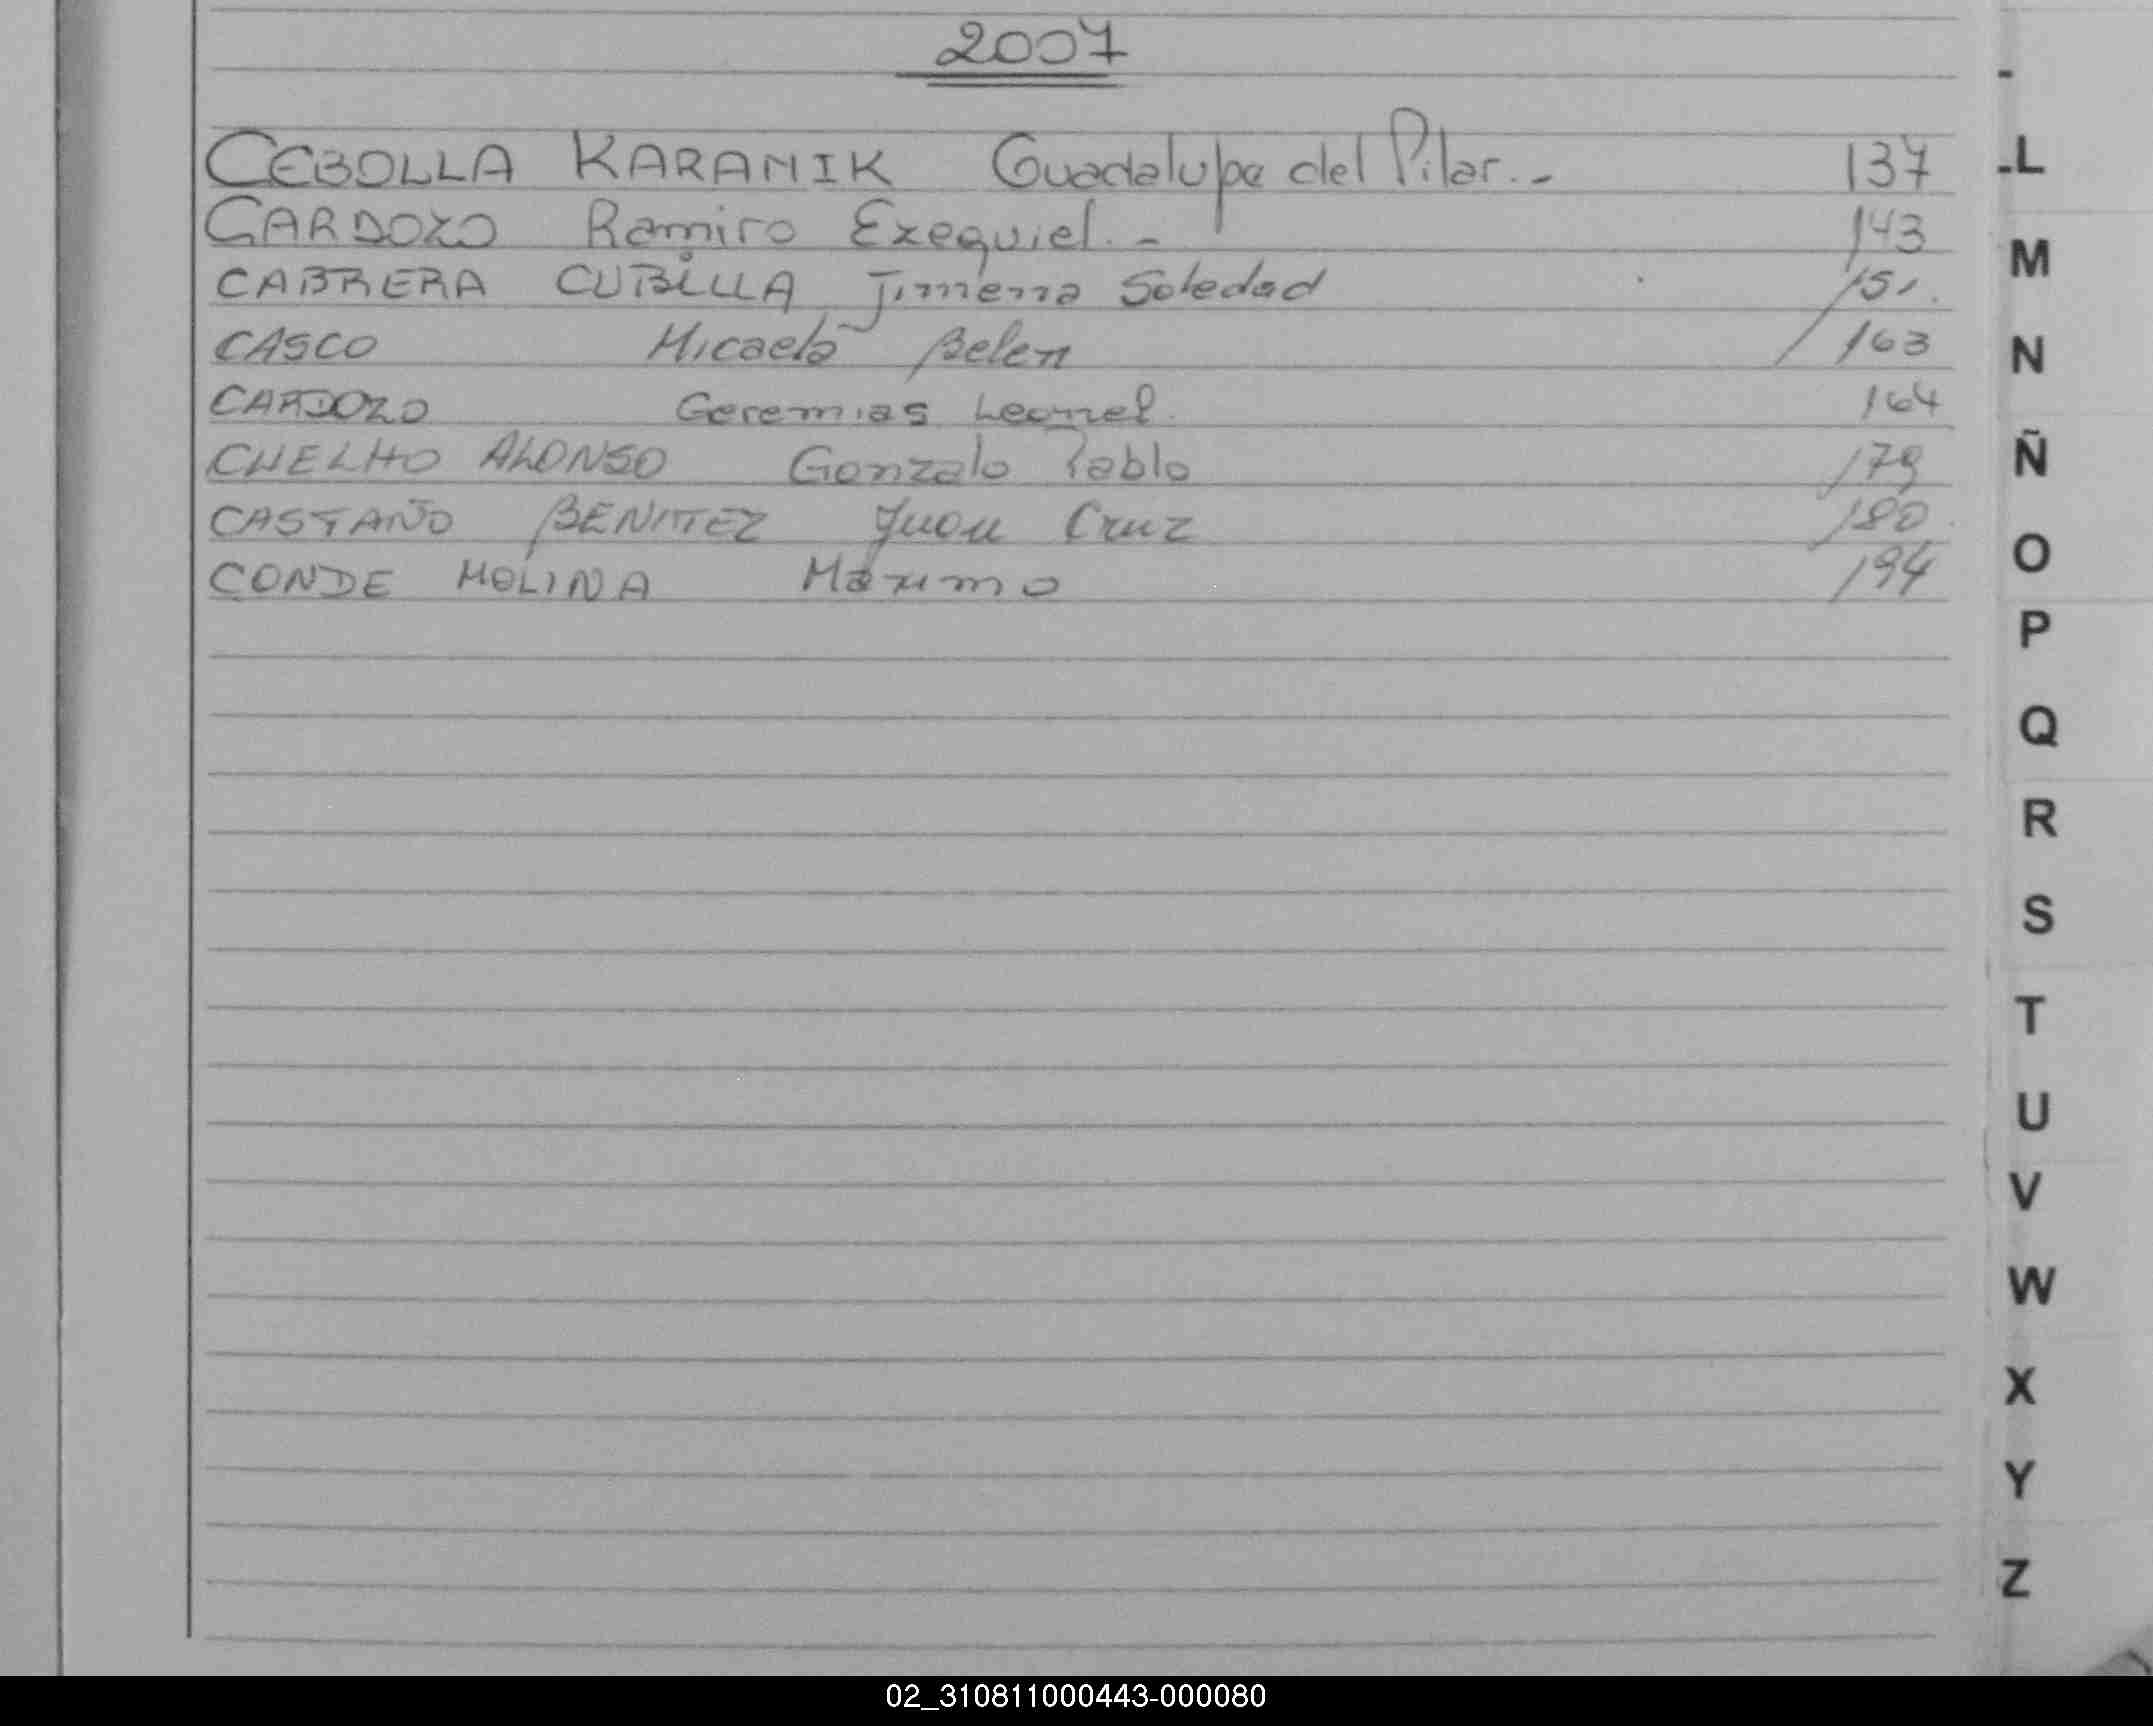 2007
CEBOLLA KARANIK Guadalupe del Pilar.- 137
CARDOZO Ramiro Exequiel.- 143
CABRERA CUBILLA Jimena Soledad 151.
CASCO Micaela Belen 163
CARDOZO Geremias Leonel. 164
CUELHO ALONSO Gonzalo Pablo 179
CASTAÑO BENITEZ Juan Cruz 180
CONDE MOLINA Maximo 194
L
M
N
Ñ
O
P
Q
R
S
T
U
V
W
X
Y
Z
02_310811000443-000080